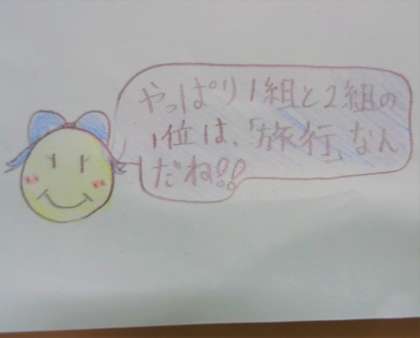 やっぱり1組と2組の
1位は、「旅行」なん
だね!!